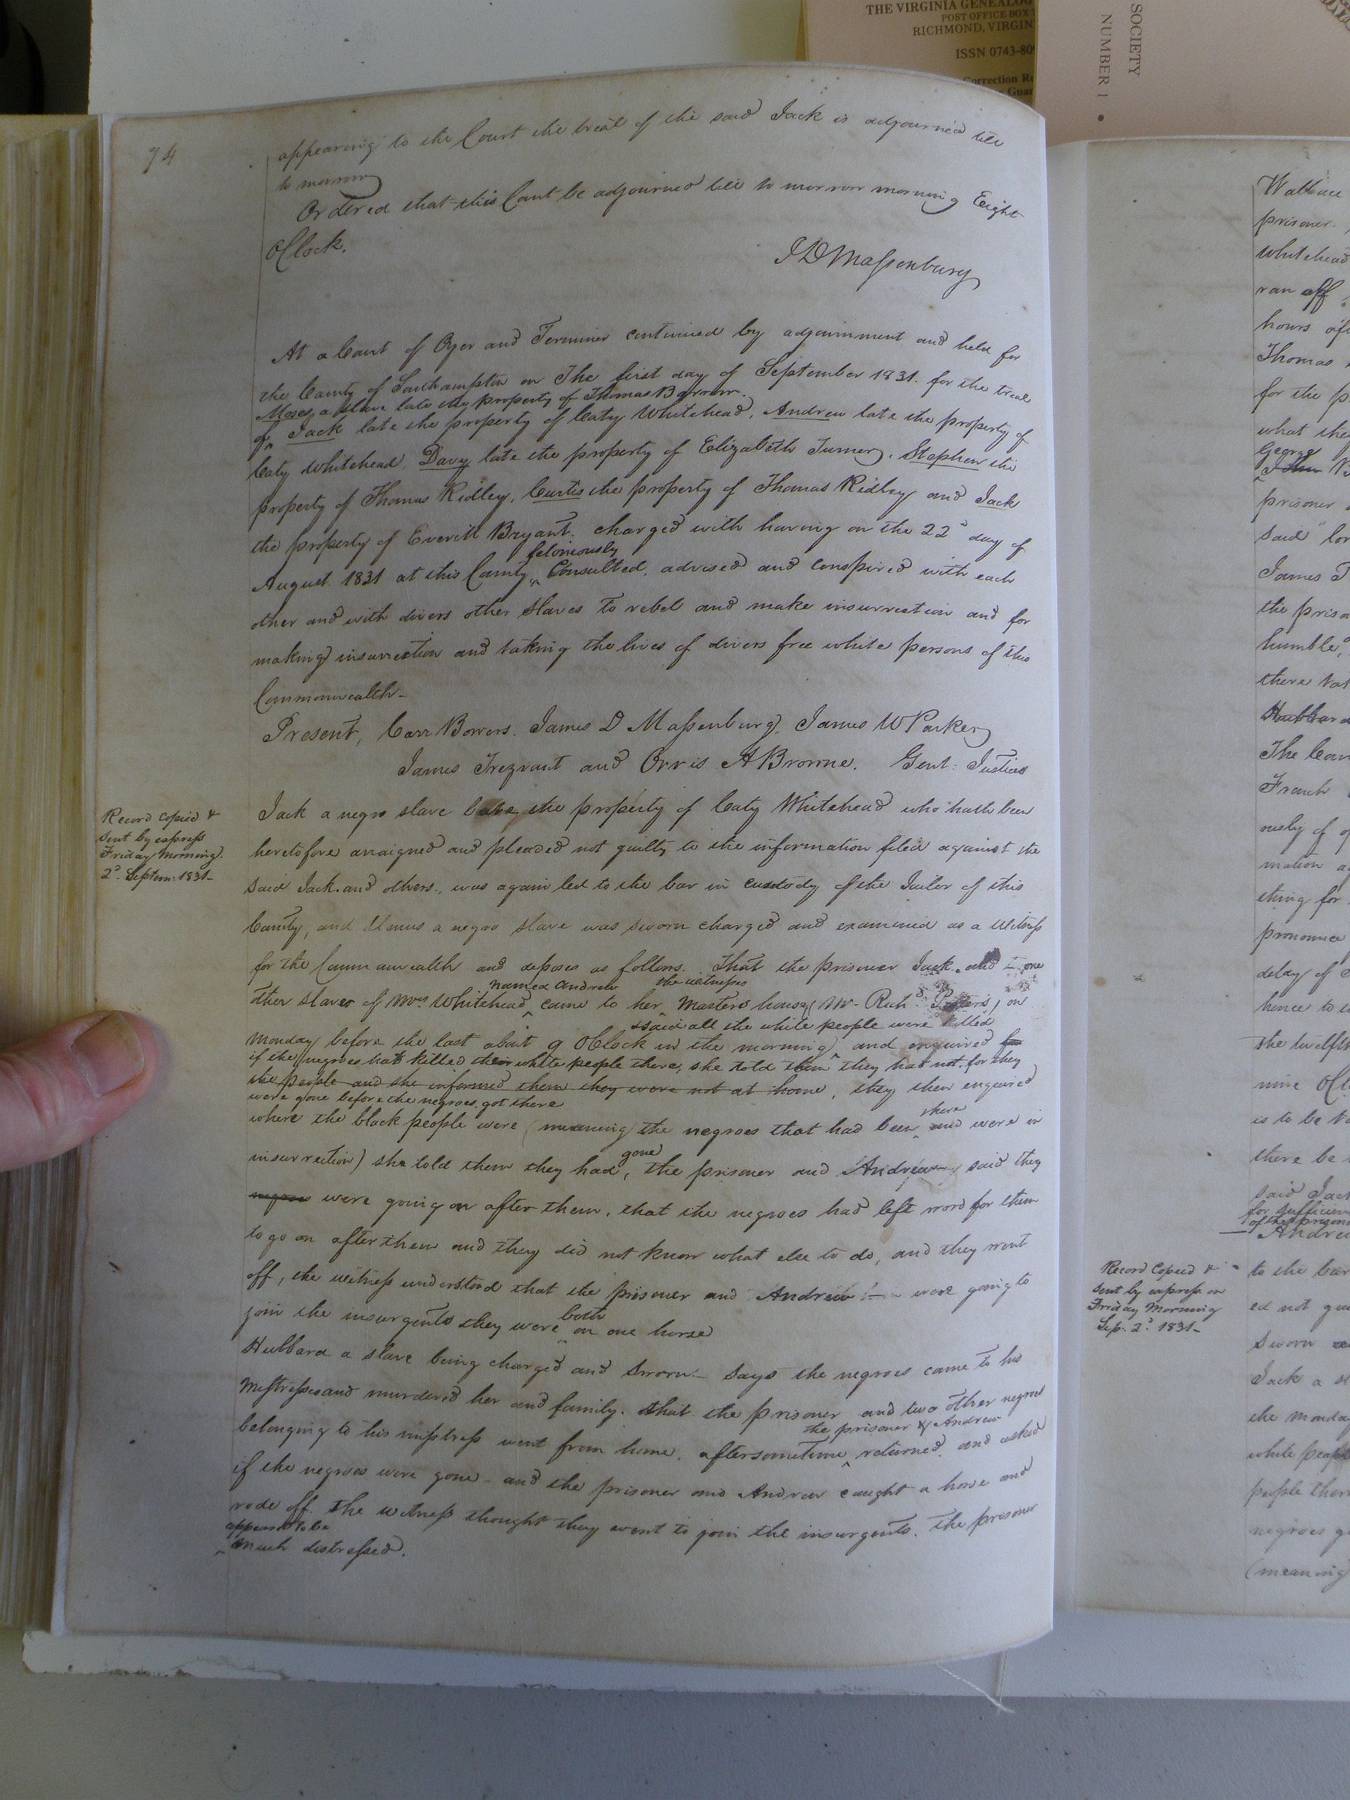 THE VIRGINIA GENEALOG
POST OFFICE BOX
RICHMOND, VIRGIN
ISSN 0743-809
Correction Re
Guar
SOCIETY
NUMBER 1
74
appearing to the Court the trial of the said Jack is adjourned till
to morrow
Ordered that this Court be adjourned till to morrow morning Eight
OClock.
J D Massenburg
At a Court of Oyer and Terminer continued by adjournment and held for
the County of Southampton on The first day of September 1831. for the trial
Moses a slave late the property of Thomas Barrow.
of Jack late the property of Caty Whitehead, Andrew late the property of
Caty Whitehead, Davy late the property of Elizabeth Turner, Stephen the
property of Thomas Ridley, Curtis the property of Thomas Ridley and Jack
the property of Everitt Bryant. charged with having on the 22d day of
feloniously
August 1831 at this County Consulted, advised and conspired with each
other and with divers other slaves to rebel and make insurrection and for
making insurrection and taking the lives of divers free white persons of this
Commonwealth-
Present, Carr Bowers. James D Massenburg, James W Parker,
James Trezvant and Orris A Browne. Gent: Justices
Record Copied &
Sent by express
Friday Morning.
2d. Septem: 1831-
Jack a negro slave late the property of Caty Whitehead who hath been
heretofore arraigned and pleaded not guilty to the information filed against the
said Jack and others, was again led to the bar in custody of the Jailor of this
County, and Venus a negro slave was sworn charged and examined as a Witness
for the Commonwealth and deposes as follows. That the prisoner Jack and one
named Andrew the witnesses
other slaves of Mrs Whitehead came to her Masters house (Mr. Richd. Porters) on
& said all the white people were killed
Monday before the last about 9 OClock in the morning, and enquired for
if the negroes had killed their white people there, she told them they had not, for they
the people and she informed them they were not at home, they then enquired
were gone before the negroes got there
there
where the black people were (meaning the negroes that had been and were in
gone
insurrection) she told them they had, the prisoner and Andrew said they
negroes were going on after them, that the negroes had left word for them
to go on after them and they did not know what else to do, and they went
off, the witness understood that the prisoner and Andrew were going to
both
join the insurgents they were on one horse
Hubbard a slave being charged and sworn - says the negroes came to his
Mistresses and murdered her and family. that the prisoner and two other negroes
the prisoner & Andrew
belonging to his mistress went from home, aftersometime returned, and asked
if the negroes were gone - and the prisoner and Andrew caught a horse and
rode off. the witness thought they went to join the insurgents. the prisoner
appeared to be
much distressed.
Wallace
prisoner
Whitehead
ran off
hours aft
Thomas
for the p
what the
George
prisoner
said
James T
the priso
humble,
there
Hubbard
The Cour
French
mation a
thing for
pronounce
delay of
hence to
the twelfth
nine OCl
is to be
there be
said Jack
for sufficient
of the prisoner
Andrew
Record Copied &
sent by express on
Friday Morning
Sep. 2d. 1831-
to the bar
ed not gu
sworn
Jack a sl
the monday
white people
people there
negroes g
(meaning